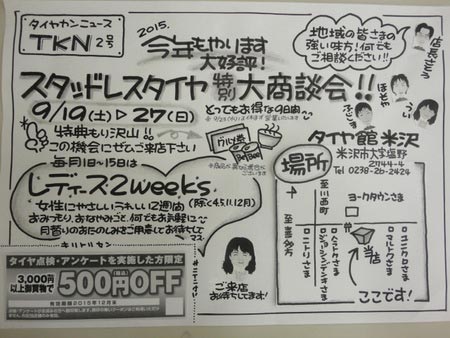 タイヤカンニュース
TKN 2号
2015.
今年もやります
大好評!
地域の皆さまの
強い味方!何でも
ご相談ください!!
店長さとう
スタッドレスタイヤ特別大商談会!!
9/19(土)▷27(日)
とってもお得な9日間
特典もり沢山!!
この機会にぜひご来店下さい
グルメ券
毎月1~15日は
レディース2weeks
女性にやさしいうれしい2週間(除く4.5.11.12月)
おみつもり、おなやみごと、何でもお気軽に
月替りのおたのしみをご用意してお待ちしてマス
タイヤ館 米沢
米沢市大字塩野
2744-4
Tel 0238-26-2424
場所
至川西町
至喜多方
ヨークタウンさま
ニトリさま
ジョーシンデンキさま
ベストクさま
マルトクさま
ユニクロさま
当店
ここです!
ご来店
お待ちしてます!
タイヤ点検・アンケートを実施した方限定
3,000円(税込)以上御買物で 500円OFF
有効期限2015年12月末